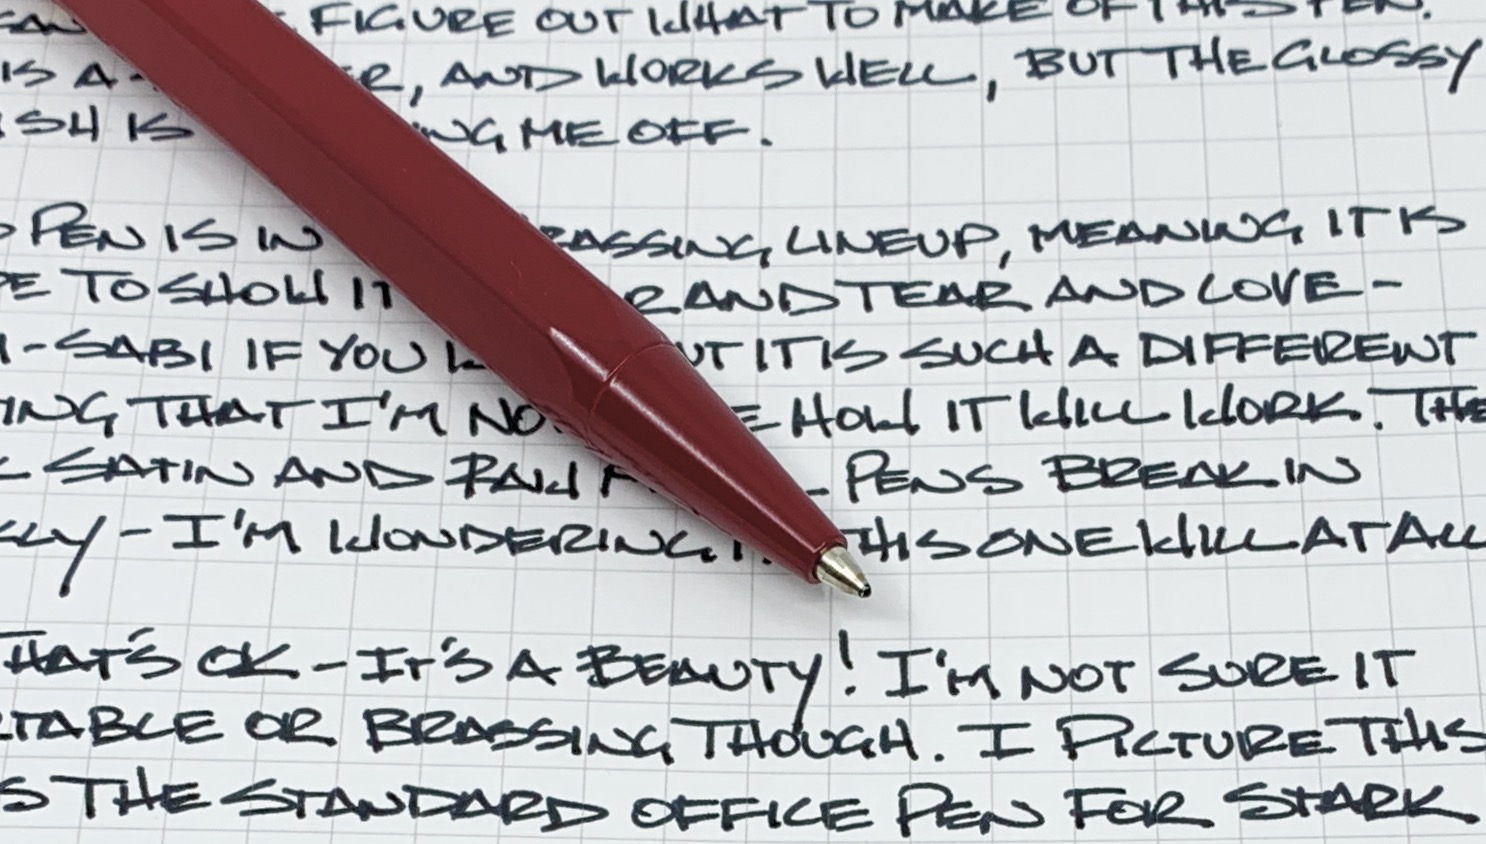 FIGURE OUT WHAT TO MAKE OF THIS PEN.
IS A , AND WORKS WELL, BUT THE GLOSSY
IS ME OFF.
PEN IS IN BRASSING LINEUP, MEANING IT IS
TO SHOW IT AND TEAR AND LOVE -
-SABI IF YOU IT IS SUCH A DIFFERENT
THAT I'M HOW IT WILL WORK. THE
SATIN AND RAW PENS BREAK IN
- I'M WONDERING THIS ONE WILL AT ALL
THAT'S OK - IT'S A BEAUTY! I'M NOT SURE IT
OR BRASSING THOUGH. I PICTURE THIS
THE STANDARD OFFICE PEN FOR STARK